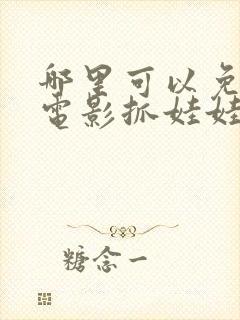 哪里可以免
电影抓娃娃
糖念一